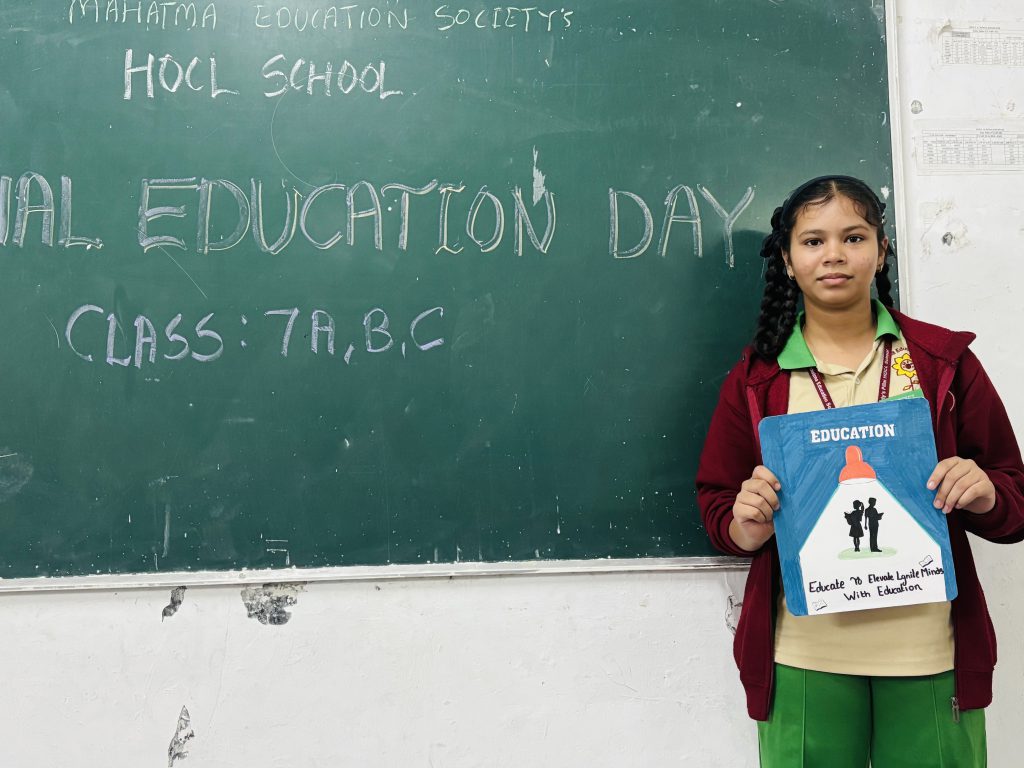 MAHATMA EDUCATION SOCIETY'S
HOCL SCHOOL
NAL EDUCATION DAY
CLASS: 7A,B,C
EDUCATION
Educate To Elevate Ignite Minds
With Education